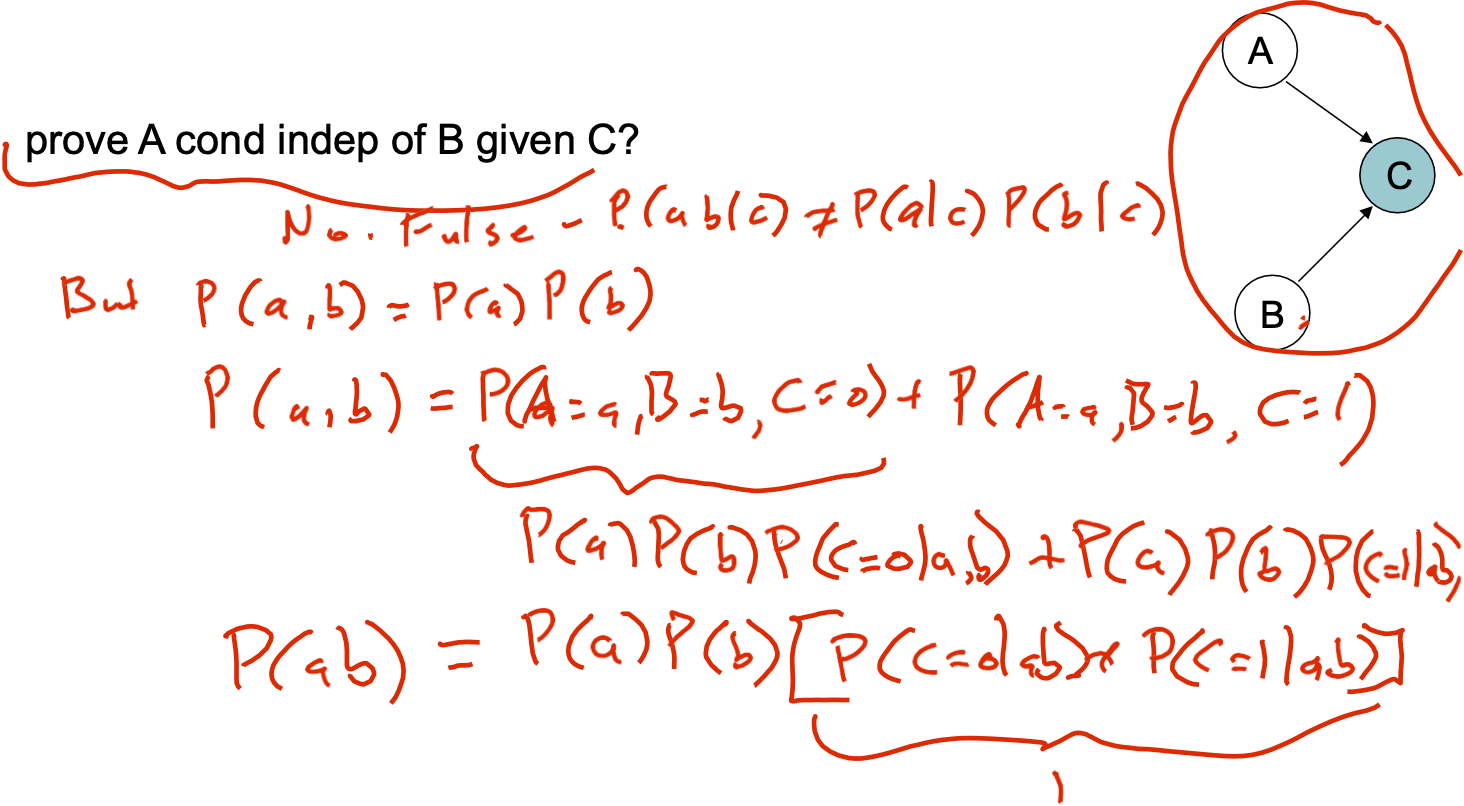 A
prove A cond indep of B given C?
C
No. False - P(ab|c) ≠ P(a|c) P(b|c)
But P(a,b) = P(a) P(b)
B
P(a,b) = P(A=a,B=b,C=0) + P(A=a,B=b,C=1)
P(a)P(b)P(C=0|a,b) + P(a)P(b)P(C=1|ab)
P(ab) = P(a)P(b)[P(C=0|ab)+ P(C=1|ab)]
1